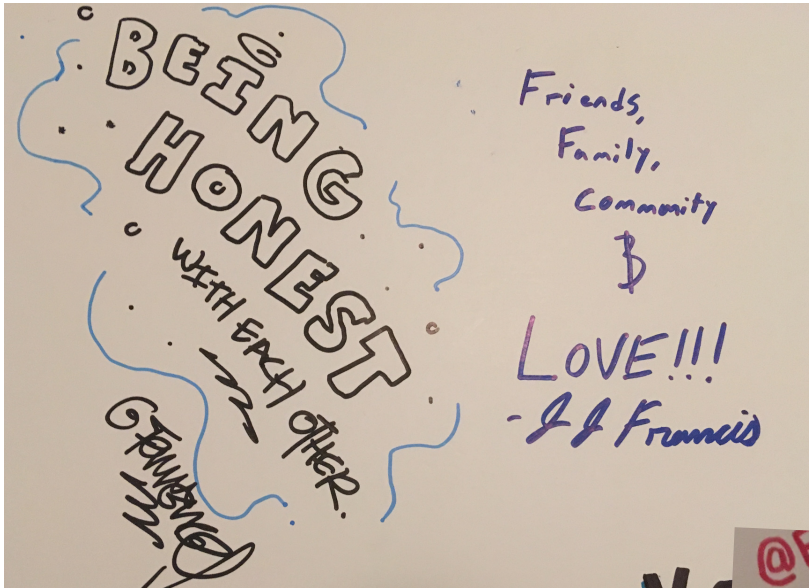 BEING
HONEST
WITH EACH OTHER.
Friends,
Family,
Community
&
LOVE!!!
- JJ Francis
@